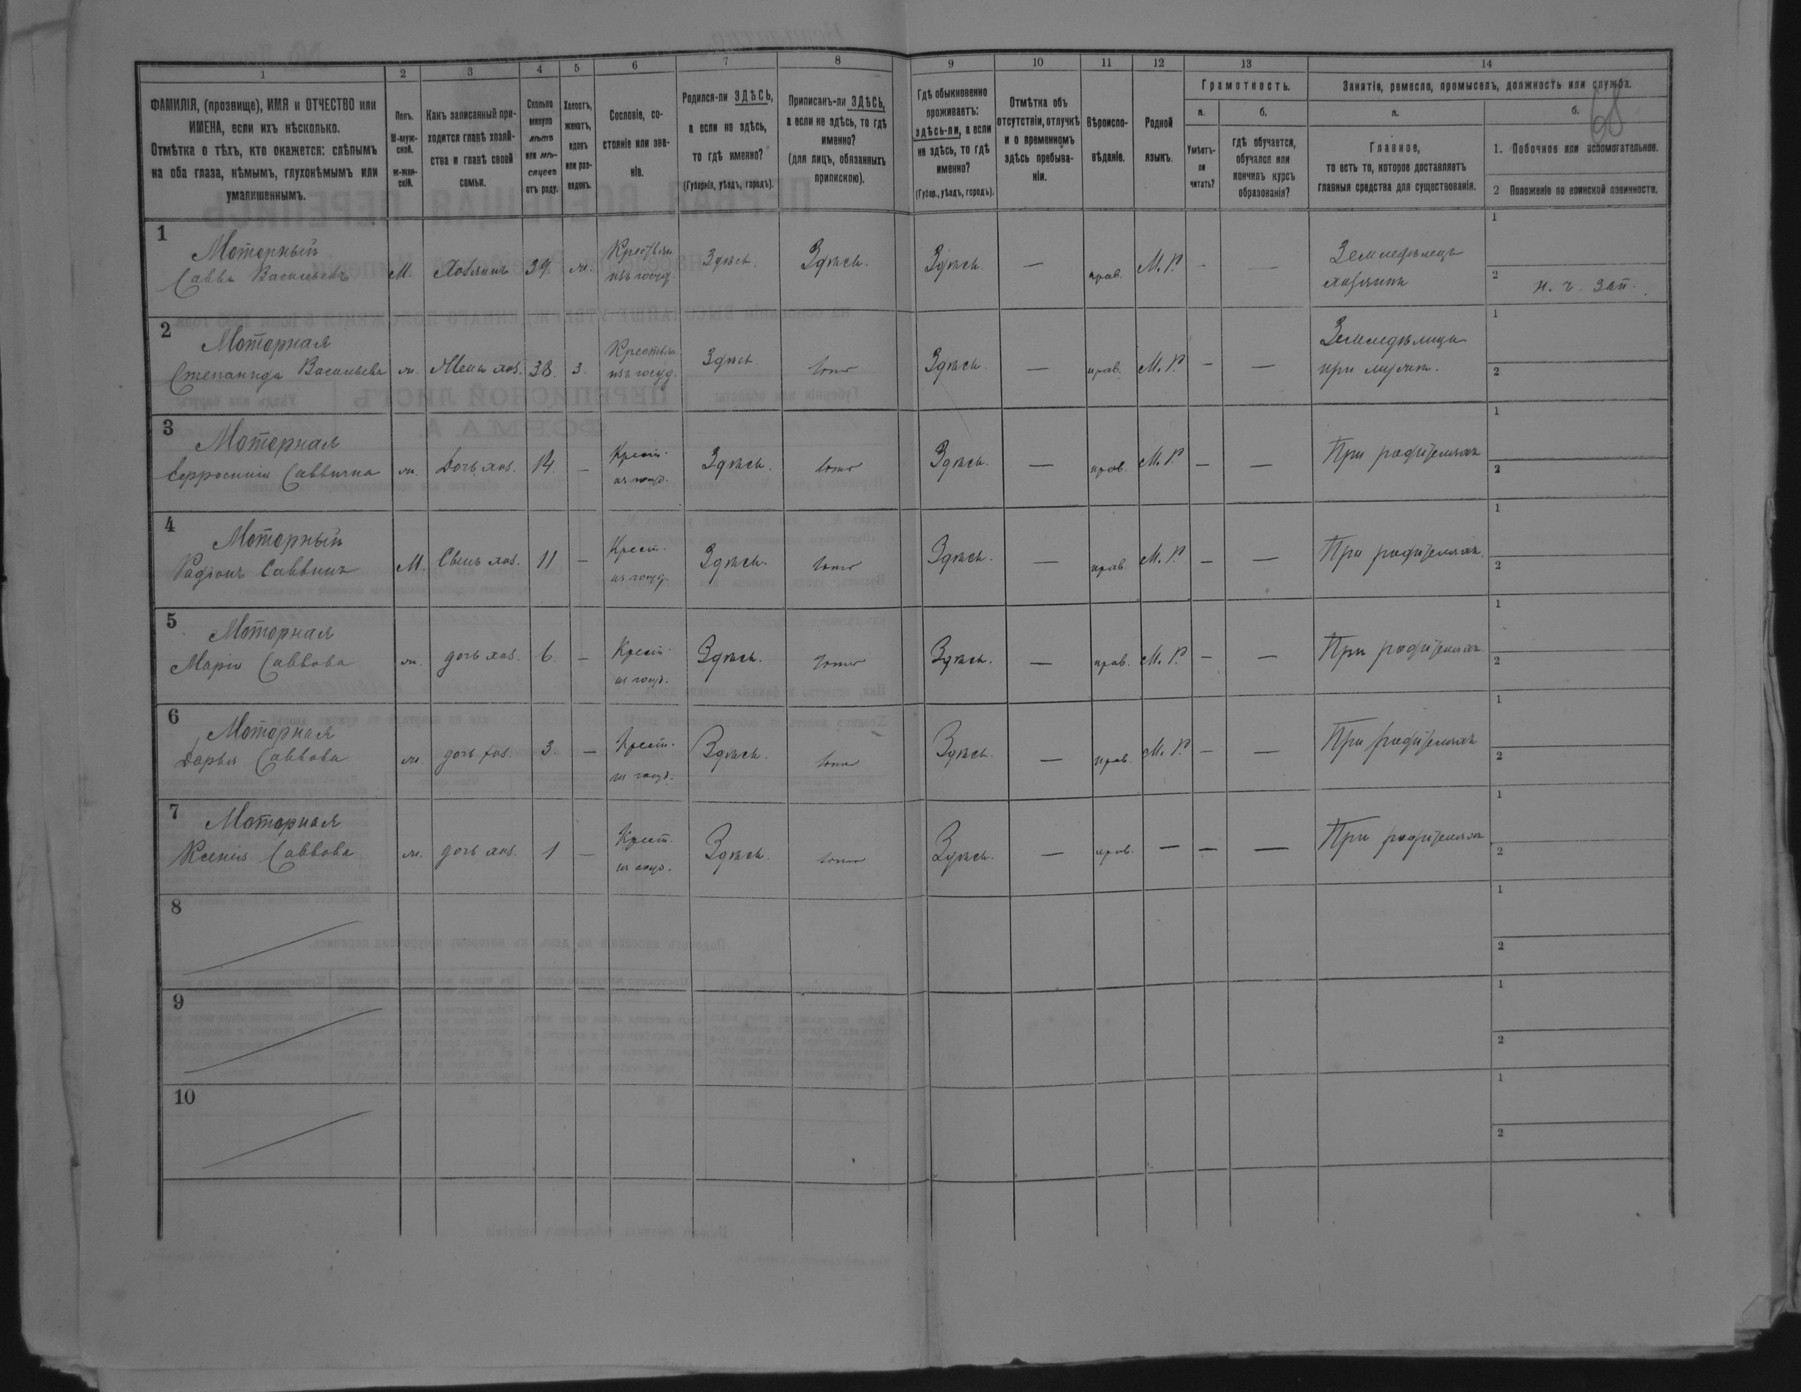 68
1 2 3 4 5 6 7 8 9 10 11 12 13 14
ФАМИЛІЯ, (прозвище), ИМЯ и ОТЧЕСТВО или
ИМЕНА, если ихъ нѣсколько.
Отмѣтка о тѣхъ, кто окажется: слѣпымъ
на оба глаза, нѣмымъ, глухонѣмымъ или
умалишеннымъ.
Полъ.
М-муж-
ской.
ж-жен-
скій.
Какъ записанный при-
ходится главѣ хозяй-
ства и главѣ своей
семьи.
Сколько
минуло
лѣтъ
или мѣ-
сяцевъ
отъ роду.
Холостъ,
женатъ,
вдовъ
или раз-
веденъ.
Сословіе, со-
стояніе или зва-
ніе.
Родился-ли ЗДѢСЬ,
а если не здѣсь,
то гдѣ именно?
(Губернія, уѣздъ, городъ).
Приписанъ-ли ЗДѢСЬ,
а если не здѣсь, то гдѣ
именно?
(для лицъ, обязанныхъ
припискою).
Гдѣ обыкновенно
проживаетъ:
здѣсь-ли, а если
не здѣсь, то гдѣ
именно?
(Губер., уѣздъ, городъ).
Отмѣтка объ
отсутствіи, отлучкѣ
и о временномъ
здѣсь пребыва-
ніи.
Вѣроиспо-
вѣданіе.
Родной
языкъ.
Грамотность.
а. б.
Умѣетъ-
ли
читать?
гдѣ обучается,
обучался или
кончилъ курсъ
образованія?
Занятіе, ремесло, промыселъ, должность или служба.
а. б.
Главное,
то есть то, которое доставляетъ
главныя средства для существованія.
1. Побочное или вспомогательное.
2 Положеніе по воинской повинности.
1
Моторный
Савва Васильевъ М. Хозяинъ 39. ж. Крестьян. изъ госуд. Здѣсь. Здѣсь. Здѣсь. — прав. М. Р. - — Земледѣлецъ
хозяинъ
1
2 н. ч. зап.
2
Моторная
Степанида Васильева ж. Жена хоз. 38. з. Крестьян. изъ госуд. Здѣсь тоже Здѣсь. — прав. М. Р. - — Земледѣлица
при мужѣ.
1
2
3
Моторная
Евфросинія Саввична ж. Дочь хоз. 14. — Крест. из госуд. Здѣсь. тоже Здѣсь. — прав. М. Р. — — При родителяхъ
1
2
4
Моторный
Радіонъ Саввинъ М Сынъ хоз. 11 — Крест. из госуд. Здѣсь. тоже Здѣсь. — прав. М. Р. — — При родителяхъ
1
2
5
Моторная
Марія Саввова ж. дочь хоз. 6. — Крест. из госуд. Здѣсь. тоже Здѣсь. — прав. М. Р. — — При родителяхъ
1
2
6
Моторная
Дарья Саввова ж. дочь хоз. 3. — Крест. из госуд. Здѣсь. тоже Здѣсь. — прав. М. Р. — — При родителяхъ
1
2
7
Моторная
Ксенія Саввова ж. дочь хоз. 1 — Крест. из госуд. Здѣсь. тоже Здѣсь. — прав. — — — При родителяхъ
1
2
8
1
2
9
1
2
10
1
2